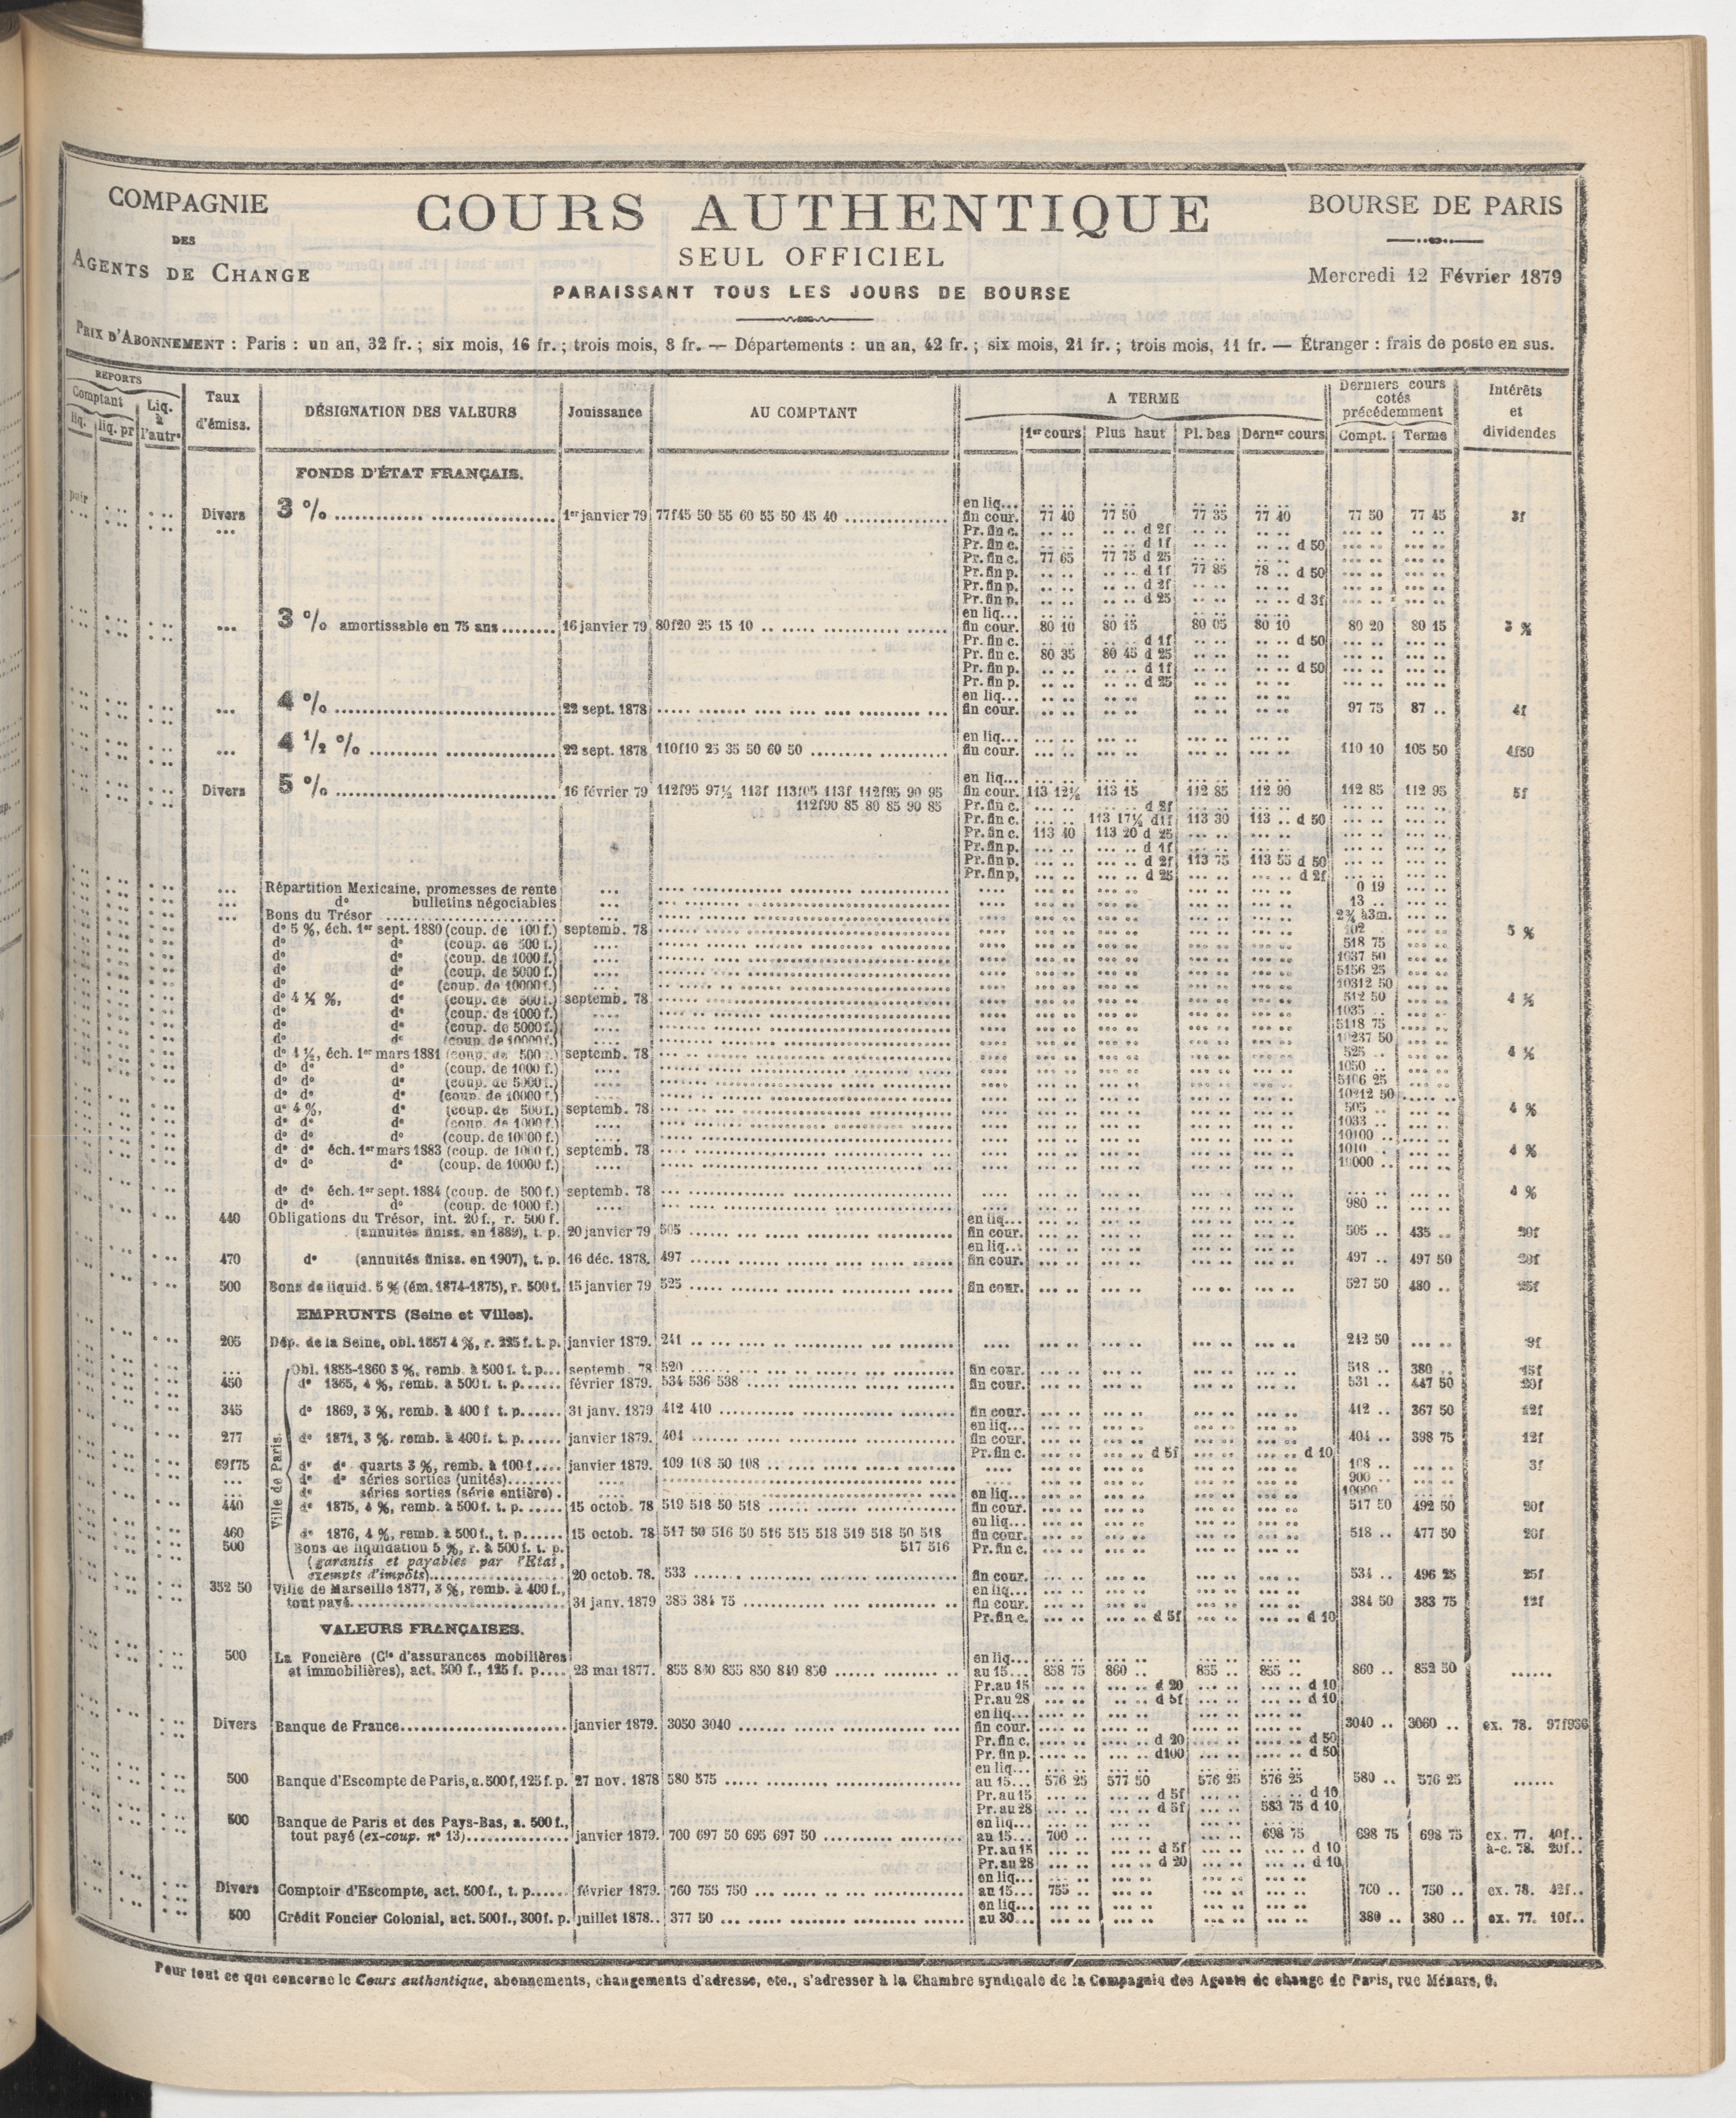 COMPAGNIE
DES
AGENTS DE CHANGE
COURS AUTHENTIQUE
SEUL OFFICIEL
PARAISSANT TOUS LES JOURS DE BOURSE
BOURSE DE PARIS
Mercredi 12 Février 1879
PRIX D'ABONNEMENT : Paris : un an, 32 fr. ; six mois, 16 fr. ; trois mois, 8 fr. — Départements : un an, 42 fr. ; six mois, 21 fr. ; trois mois, 11 fr. — Étranger : frais de poste en sus.
REPORTS
Comptant
liq. liq. pr
Liq. à l'autre
Taux d'émiss.
DÉSIGNATION DES VALEURS
Jouissance
AU COMPTANT
A TERME
1er cours Plus haut Pl. bas Dernier cours
Derniers cours cotés précédemment
Compt. Terme
Intérêts et dividendes
FONDS D'ÉTAT FRANÇAIS.
pair
en liq...
Divers 3 % 1er janvier 79 77f45 50 55 60 55 50 45 40 fin cour. 77 40 77 50 77 35 77 40 77 50 77 45 3f
Pr. fin c. d 2f
Pr. fin c. d 1f d 50
Pr. fin c. 77 65 77 75 d 25
Pr. fin p. d 1f 77 85 78 .. d 50
Pr. fin p. d 2f
Pr. fin p. d 25 d 3f
en liq...
3 % amortissable en 75 ans 16 janvier 79 80f20 25 15 10 fin cour. 80 10 80 15 80 05 80 10 80 20 80 15 3 %
Pr. fin c. d 1f d 50
Pr. fin c. 80 35 80 45 d 25
Pr. fin p. d 1f d 50
Pr. fin p. d 25
en liq...
4 % 22 sept. 1878 fin cour. 97 75 87 .. 4f
en liq...
4 1/2 % 22 sept. 1878 110f10 25 35 50 60 50 fin cour. 110 10 105 50 4f50
en liq...
Divers 5 % 16 février 79 112f95 97½ 113f 113f05 113f 112f95 90 95 fin cour. 113 12½ 113 15 112 85 112 90 112 85 112 95 5f
112f90 85 80 85 90 85 Pr. fin c. d 2f
Pr. fin c. 113 17½ d1f 113 30 113 .. d 50
Pr. fin c. 113 40 113 20 d 25
Pr. fin p. d 1f
Pr. fin p. d 2f 113 75 113 55 d 50
Pr. fin p. d 25 d 2f
Répartition Mexicaine, promesses de rente 0 19
do bulletins négociables 13 ..
Bons du Trésor 2¾ à3m.
do 5 %, éch. 1er sept. 1880 (coup. de 100 f.) septemb. 78 102 5 %
do do (coup. de 500 f.) 518 75
do do (coup. de 1000 f.) 1037 50
do do (coup. de 5000 f.) 5156 25
do do (coup. de 10000 f.) 10312 50
do 4 ½ %, do (coup. de 500 f.) septemb. 78 512 50 4 ½
do do (coup. de 1000 f.) 1035 ..
do do (coup. de 5000 f.) 5118 75
do do (coup. de 10000 f.) 10237 50
do 4 ½, éch. 1er mars 1881 (coup. de 500 f.) septemb. 78 525 .. 4 ½
do do do (coup. de 1000 f.) 1050 ..
do do do (coup. de 5000 f.) 5106 25
do do do (coup. de 10000 f.) 10212 50
do 4 %, do (coup. de 500 f.) septemb. 78 505 .. 4 %
do do do (coup. de 1000 f.) 1033 ..
do do do (coup. de 10000 f.) 10100 ..
do do éch. 1er mars 1883 (coup. de 1000 f.) septemb. 78 1010 .. 4 %
do do do (coup. de 10000 f.) 10000 ..
do do éch. 1er sept. 1884 (coup. de 500 f.) septemb. 78 4 %
do do do (coup. de 1000 f.) 980 ..
440 Obligations du Trésor, int. 20 f., r. 500 f. en liq...
(annuités finiss. en 1889), t. p. 20 janvier 79 505 fin cour. 505 .. 435 .. 20f
en liq...
470 do (annuités finiss. en 1907), t. p. 16 déc. 1878. 497 fin cour. 497 .. 497 50 20f
500 Bons de liquid. 5 % (ém. 1874-1875), r. 500 f. 15 janvier 79 525 fin cour. 527 50 480 .. 25f
EMPRUNTS (Seine et Villes).
205 Dép. de la Seine, obl. 1857 4 %, r. 225 f. t. p. janvier 1879. 241 242 50 9f
Ville de Paris.
Obl. 1855-1860 3 %, remb. à 500 f. t. p. septemb. 78 520 fin cour. 518 .. 380 .. 15f
450 do 1865, 4 %, remb. à 500 f. t. p. février 1879. 534 536 538 fin cour. 531 .. 447 50 20f
345 do 1869, 3 %, remb. à 400 f t. p. 31 janv. 1879 412 410 fin cour. 412 .. 367 50 12f
en liq...
277 do 1871, 3 %, remb. à 400 f. t. p. janvier 1879. 404 fin cour. 404 .. 398 75 12f
Pr. fin c. d 5f d 10
69f75 do do quarts 3 %, remb. à 100 f. janvier 1879. 109 108 50 108 108 .. 3f
do do séries sorties (unités) 900 ..
do séries sorties (série entière) 10000 ..
en liq...
440 do 1875, 4 %, remb. à 500 f. t. p. 15 octob. 78 519 518 50 518 fin cour. 517 50 492 50 20f
en liq...
460 do 1876, 4 %, remb. à 500 f., t. p. 15 octob. 78 517 50 516 50 516 515 518 519 518 50 518 fin cour. 518 .. 477 50 20f
500 Bons de liquidation 5 %, r. à 500 f. t. p. 517 516 Pr. fin c.
(garantis et payables par l'Etat,
exempts d'impôts) 20 octob. 78. 533 fin cour. 534 .. 496 25 25f
352 50 Ville de Marseille 1877, 3 %, remb. à 400 f., en liq...
tout payé 31 janv. 1879 385 384 75 fin cour. 384 50 383 75 12f
Pr. fin c. d 5f d 10
VALEURS FRANÇAISES.
500 La Foncière (Cie d'assurances mobilières en liq...
et immobilières), act. 500 f., 125 f. p. 23 mai 1877. 855 860 855 850 840 850 au 15... 858 75 860 .. 855 .. 855 .. 860 .. 852 50
Pr. au 15 d 20 d 10
Pr. au 28 d 5f d 10
en liq...
Divers Banque de France janvier 1879. 3050 3040 fin cour. 3040 .. 3060 .. ex. 78. 97f936
Pr. fin c. d 20 d 50
Pr. fin p. d100 d 50
en liq...
500 Banque d'Escompte de Paris, a. 500 f, 125 f. p. 27 nov. 1878 580 575 au 15... 576 25 577 50 576 25 576 25 580 .. 576 25
Pr. au 15 d 5f d 10
Pr. au 28 d 5f 583 75 d 10
500 Banque de Paris et des Pays-Bas, a. 500 f., en liq...
tout payé (ex-coup. no 13) janvier 1879. 700 697 50 695 697 50 au 15... 700 .. 698 75 698 75 698 75 ex. 77. 40f..
Pr. au 15 d 5f d 10 à-c. 78. 20f..
Pr. au 28 d 20 d 10
en liq...
Divers Comptoir d'Escompte, act. 500 f., t. p. février 1879. 760 755 750 au 15... 755 .. 760 .. 750 .. ex. 78. 42f..
en liq...
500 Crédit Foncier Colonial, act. 500 f., 300 f. p. juillet 1878.. 377 50 au 30... 380 .. 380 .. ex. 77. 10f..
Pour tout ce qui concerne le Cours authentique, abonnements, changements d'adresse, etc., s'adresser à la Chambre syndicale de la Compagnie des Agents de change de Paris, rue Ménars, 6.